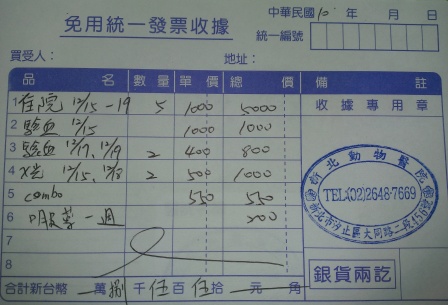 免用統一發票收據
中華民國10 年 月 日
統一編號
買受人： 地址：
品 名 數量 單價 總 價 備 註
1 住院 12/15-19 5 1000 5000 收據專用章
2 驗血 12/15 1000 1000
3 驗血 12/17、12/19 2 400 800
4 X光 12/15、12/18 2 500 1000
5 combo 550 550
6 口服藥一週 200
7
8
新北動物醫院
TEL:(02)2648-7669
新北市汐止區大同路二段456號
合計新台幣 萬 捌 千 伍 百 伍 拾 元 角
銀貨兩訖